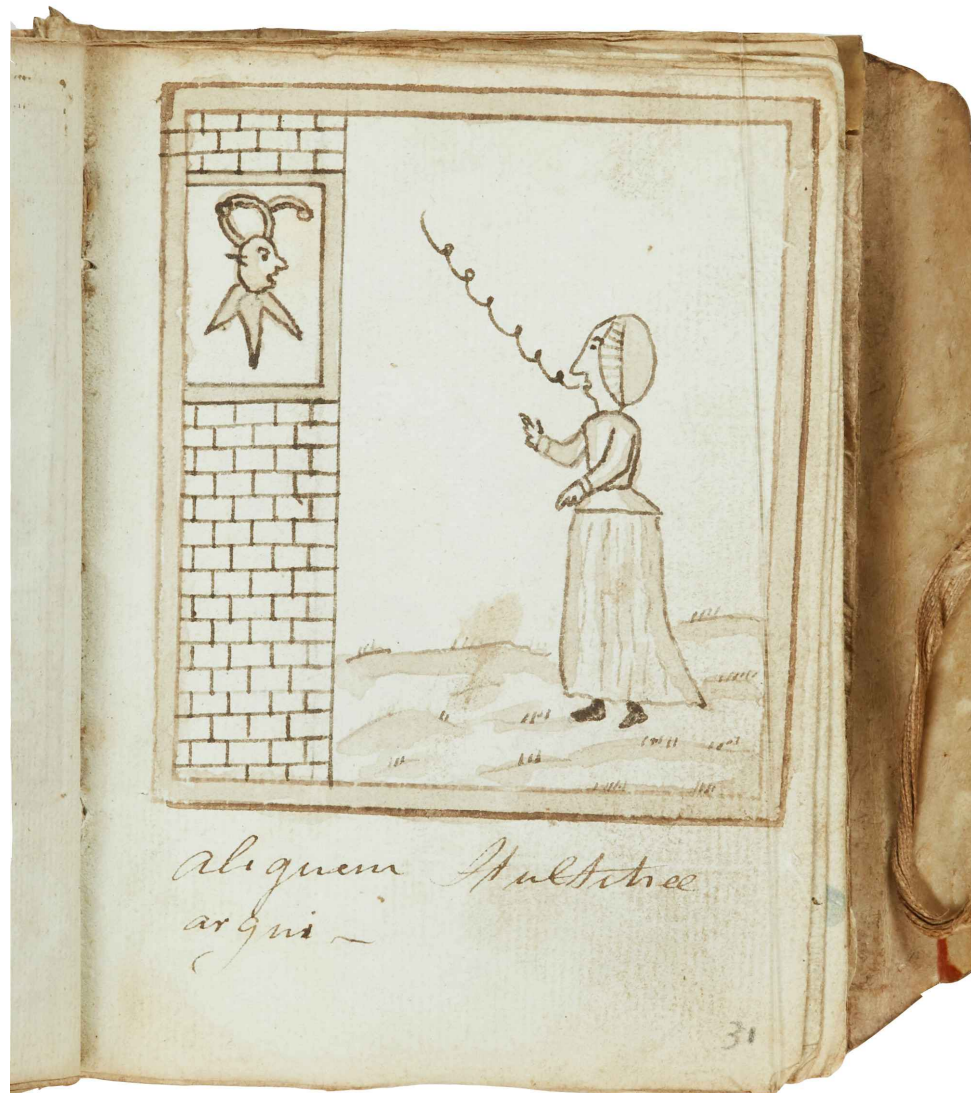 aliquem Stultitiae
argui –
31